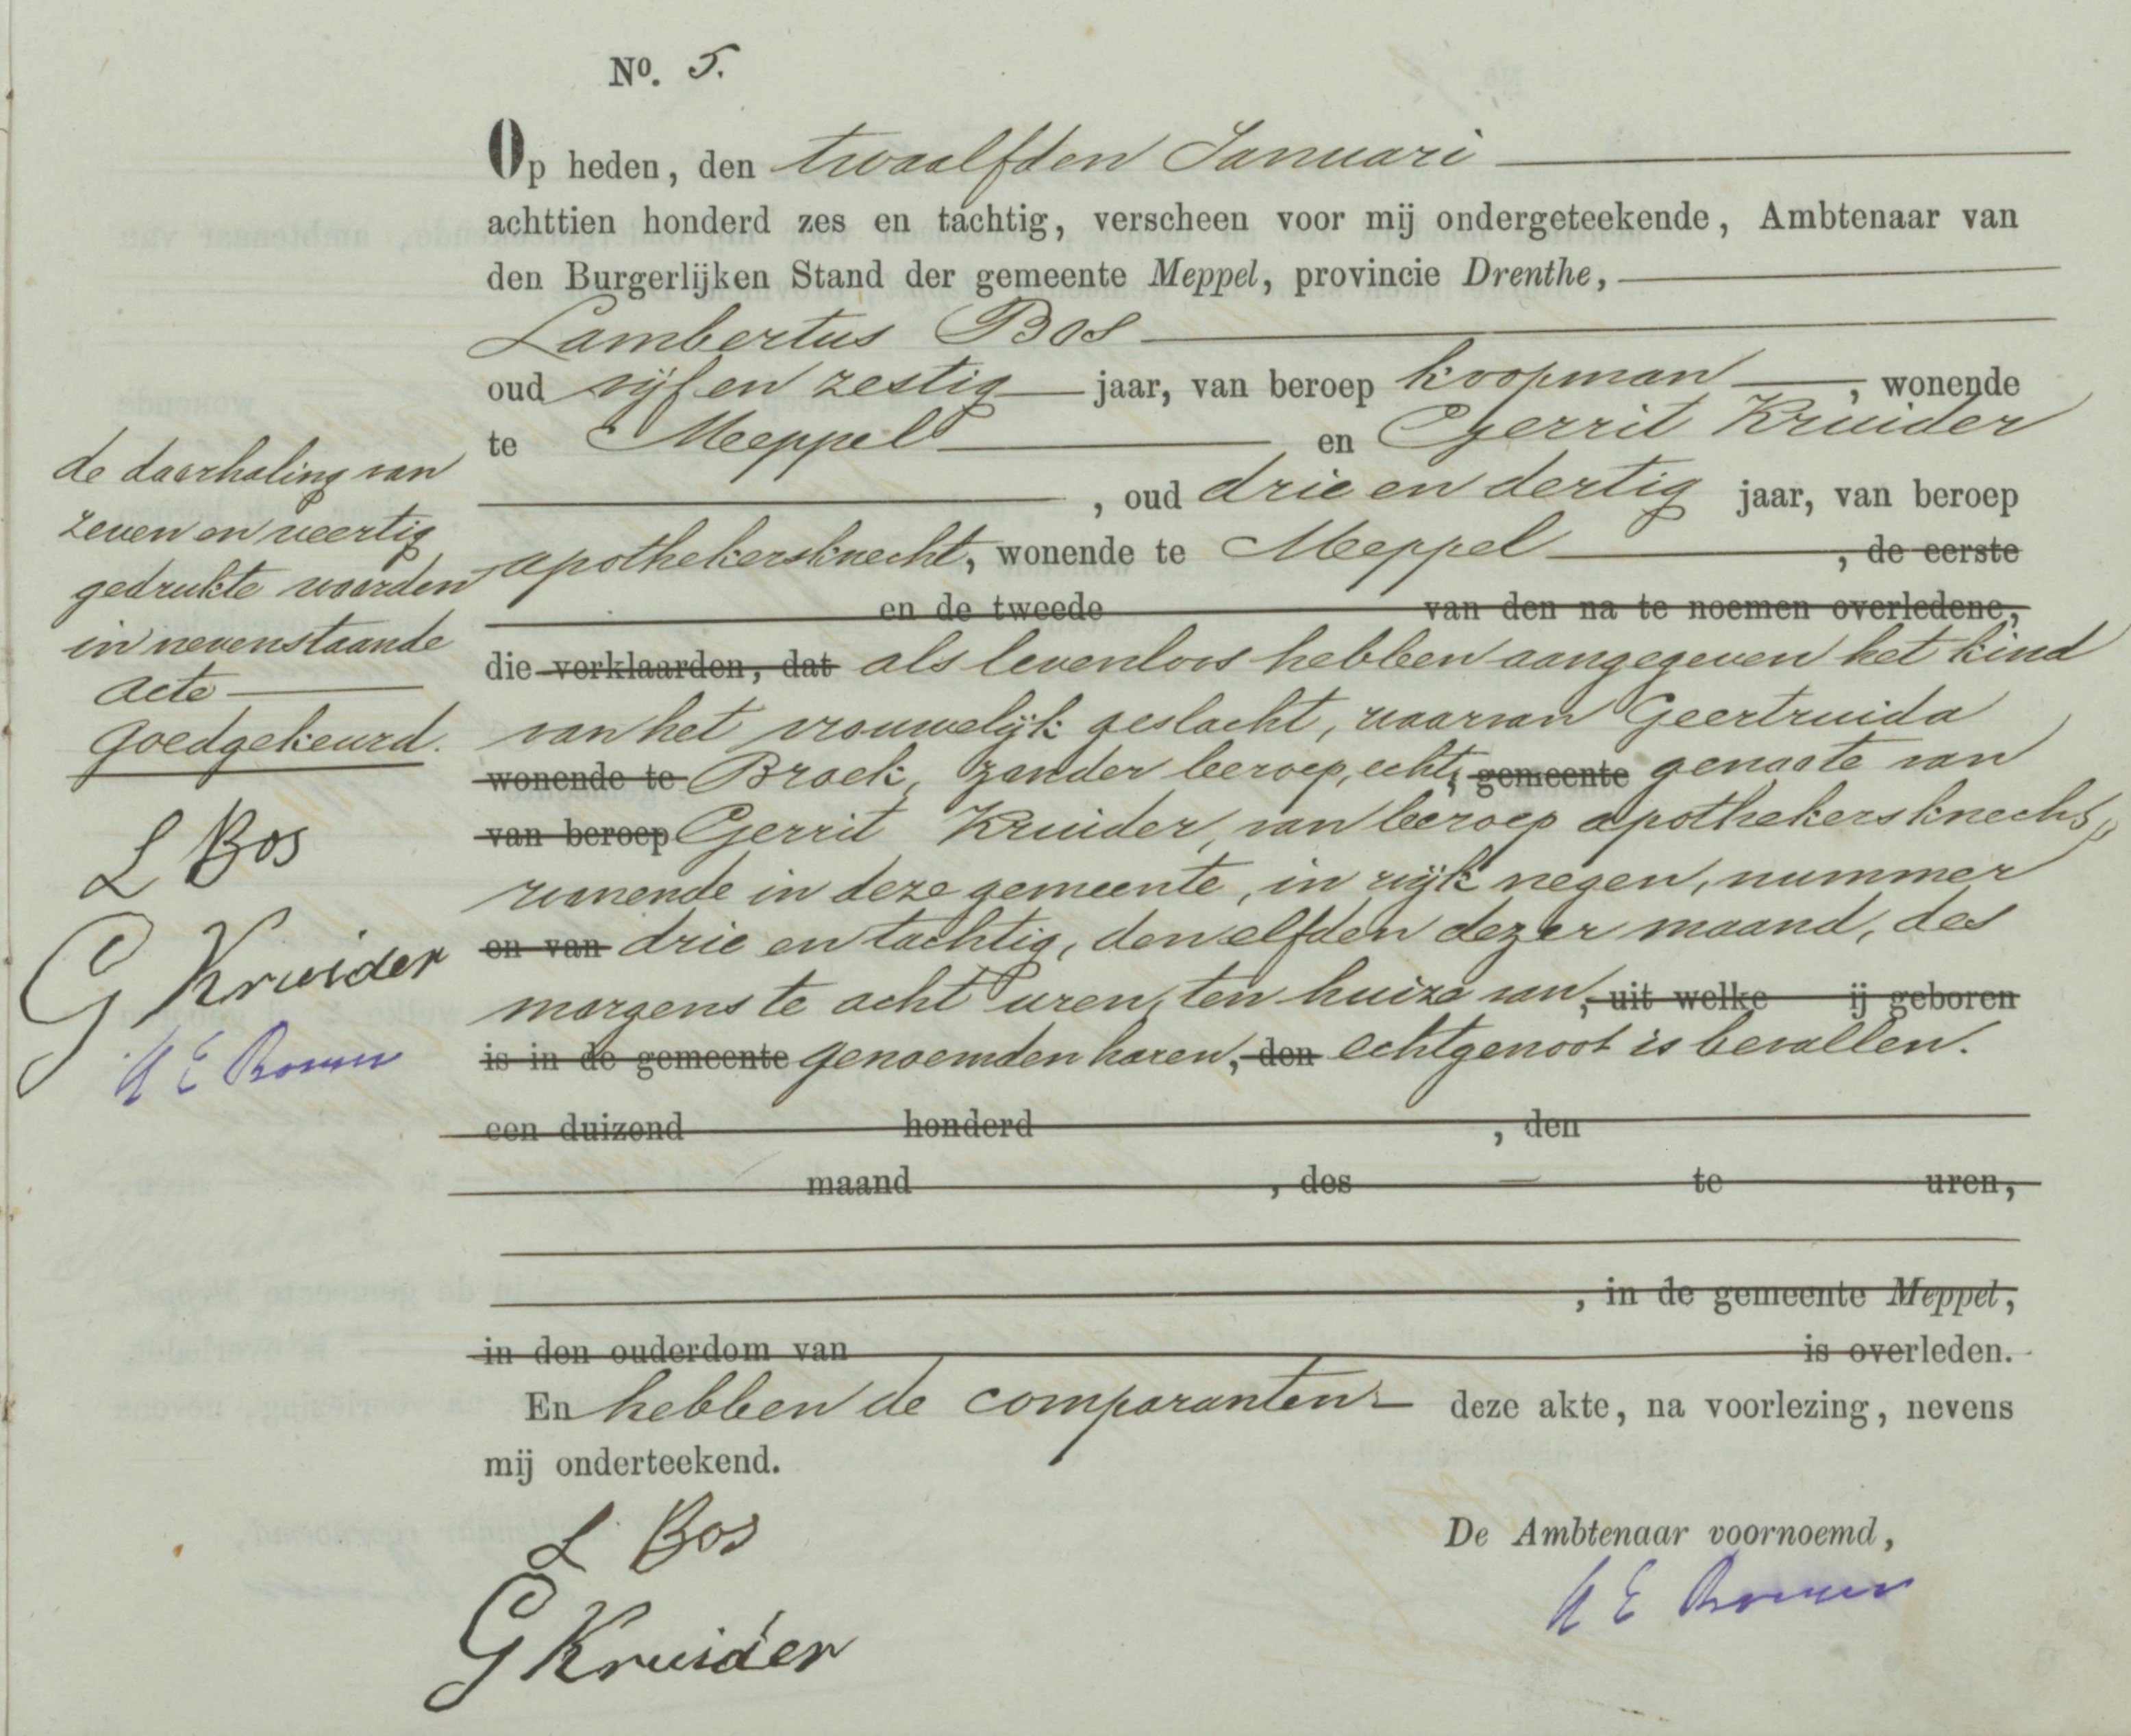 No. 5.
Op heden, den twaalfden Januari
achttien honderd zes en tachtig, verscheen voor mij ondergeteekende, Ambtenaar van
den Burgerlijken Stand der gemeente Meppel, provincie Drenthe,
Lambertus Bos
oud vijf en zestig jaar, van beroep koopman, wonende
te Meppel en Gerrit Kruider
, oud drie en dertig jaar, van beroep
apothekersknecht, wonende te Meppel, de eerste
en de tweede van den na te noemen overledene,
die verklaarden, dat als levenloos hebben aangegeven het kind
van het vrouwelijk geslacht, waarvan Geertruida
wonende te Broek, zonder beroep, echt, gemeente genoote van
van beroep Gerrit Kruider, van beroep apothekersknecht,
wonende in deze gemeente, in wijk negen, nummer
en van drie en tachtig, den elfden dezer maand, des
morgens te acht uren, ten huize van, uit welke ij geboren
is in de gemeente genoemden haren, den echtgenoot is bevallen.
een duizend honderd , den
maand , des te uren,
, in de gemeente Meppel,
in den ouderdom van is overleden.
En hebben de comparanten deze akte, na voorlezing, nevens
mij onderteekend.
L Bos
G Kruider
De Ambtenaar voornoemd,
de doorhaling van
zeven en veertig
gedrukte woorden
in nevenstaande
acte
goedgekeurd.
L Bos
G Kruider